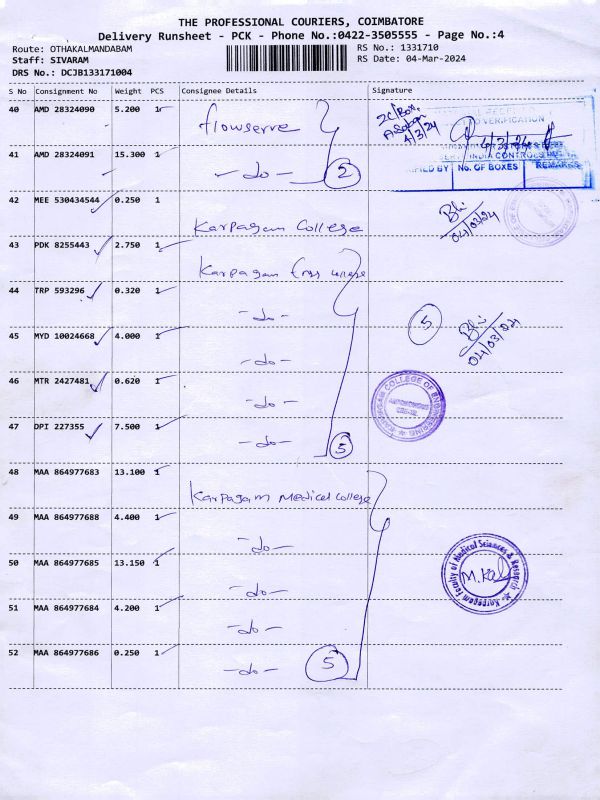 THE PROFESSIONAL COURIERS, COIMBATORE
Delivery Runsheet - PCK - Phone No.:0422-3505555 - Page No.:4
Route: OTHAKALMANDABAM
Staff: SIVARAM
DRS No.: DCJB133171004
RS No.: 1331710
RS Date: 04-Mar-2024
S No Consignment No Weight PCS Consignee Details Signature
40 AMD 28324090 5.200 1 flowserve
2C/Box
4/3/24
VERIFICATION
4/3/24
INDIA CONTROLS
No. OF BOXES REMARKS
41 AMD 28324091 15.300 1 -do- 2
42 MEE 530434544 0.250 1 Karpagam College
04/03/24
43 PDK 8255443 2.750 1 Karpagam
44 TRP 593296 0.320 1 -do- 5
04/03/24
45 MYD 10024668 4.000 1 -do-
46 MTR 2427481 0.620 1 -do-
KARPAGAM COLLEGE OF ENGINEERING
AUTONOMOUS
47 DPI 227355 7.500 1 -do- 5
48 MAA 864977683 13.100 1 Karpagam Medical College
49 MAA 864977688 4.400 1 -do-
50 MAA 864977685 13.150 1 -do-
Karpagam Faculty of Medical Sciences & Research
51 MAA 864977684 4.200 1 -do-
52 MAA 864977686 0.250 1 -do- 5